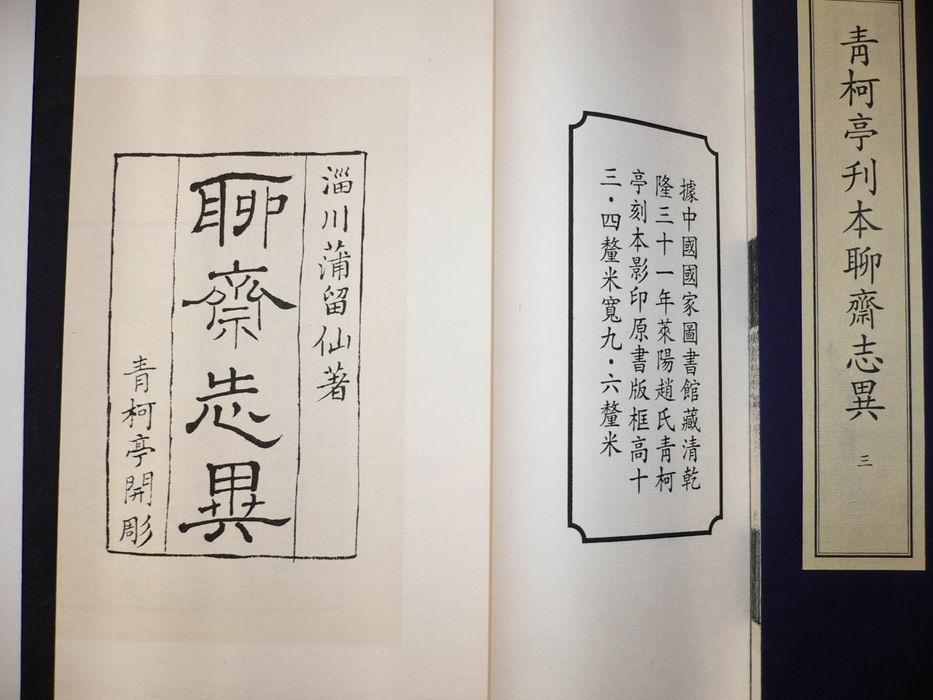 青柯亭刊本聊齋志異
三
據中國國家圖書館藏清乾
隆三十一年萊陽趙氏青柯
亭刻本影印原書版框高十
三·四釐米寬九·六釐米
淄川蒲留仙著
聊齋志異
青柯亭開彫